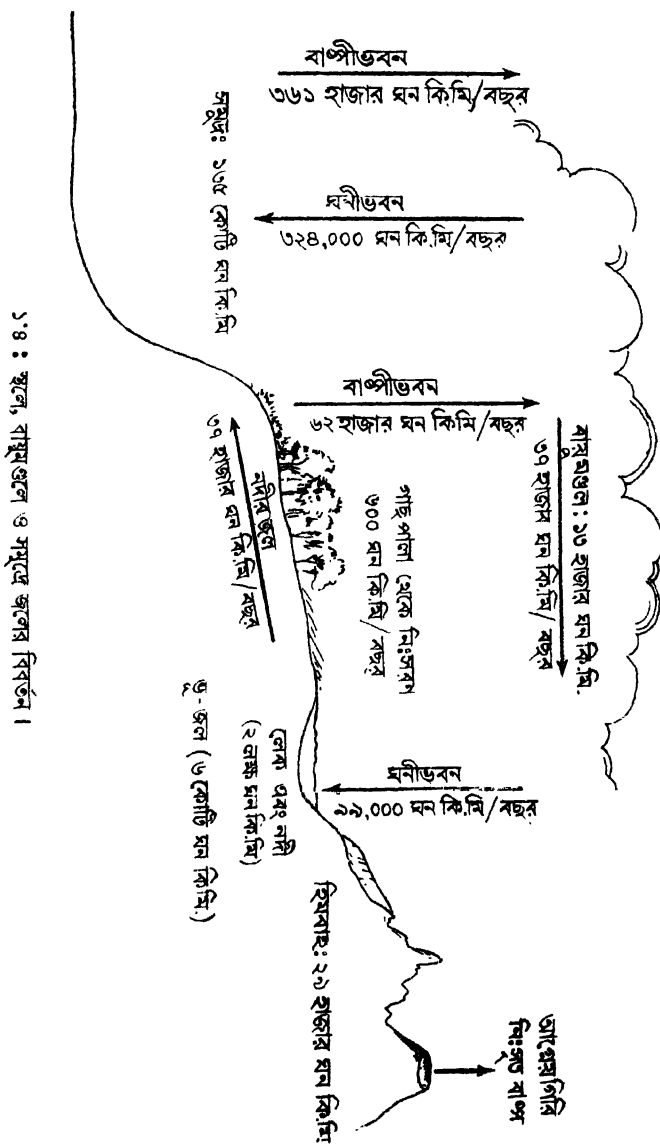 বাষ্পীভবন
৩৬১ হাজার ঘন কি.মি/বছর
সমুদ্র: ১৩৫ কোটি ঘন কি.মি
ঘনীভবন
৩২৪,০০০ ঘন কি.মি/বছর
বাষ্পীভবন
৬২ হাজার ঘন কি.মি/বছর
বায়ুমণ্ডল: ১৩ হাজার ঘন কি.মি.
৩৭ হাজার ঘন কি.মি/বছর
নদীর জল
৩৭ হাজার ঘন কি.মি/বছর
গাছপালা থেকে নিঃসরণ
৬০০ ঘন কি.মি/বছর
ঘনীভবন
৯৯,০০০ ঘন কি.মি/বছর
লেক এবং নদী
(২ লক্ষ ঘন কি.মি)
ভূ-জল (৬ কোটি ঘন কি.মি.)
হিমবাহ: ২৯ হাজার ঘন কি.মি.
আগ্নেয়গিরি
নিঃসৃত বাষ্প
১'৪ : স্থলে, বায়ুমণ্ডলে ও সমুদ্রে জলের বিবর্তন।